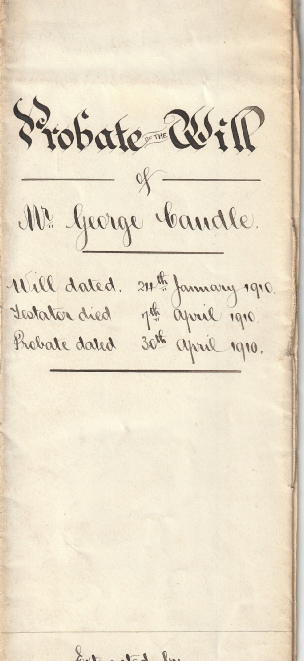 Probate OF THE Will
of
Mr. George Caudle.
Will dated. 24th January 1910.
Testator died 7th April 1910
Probate dated 30th April 1910.
Extracted by